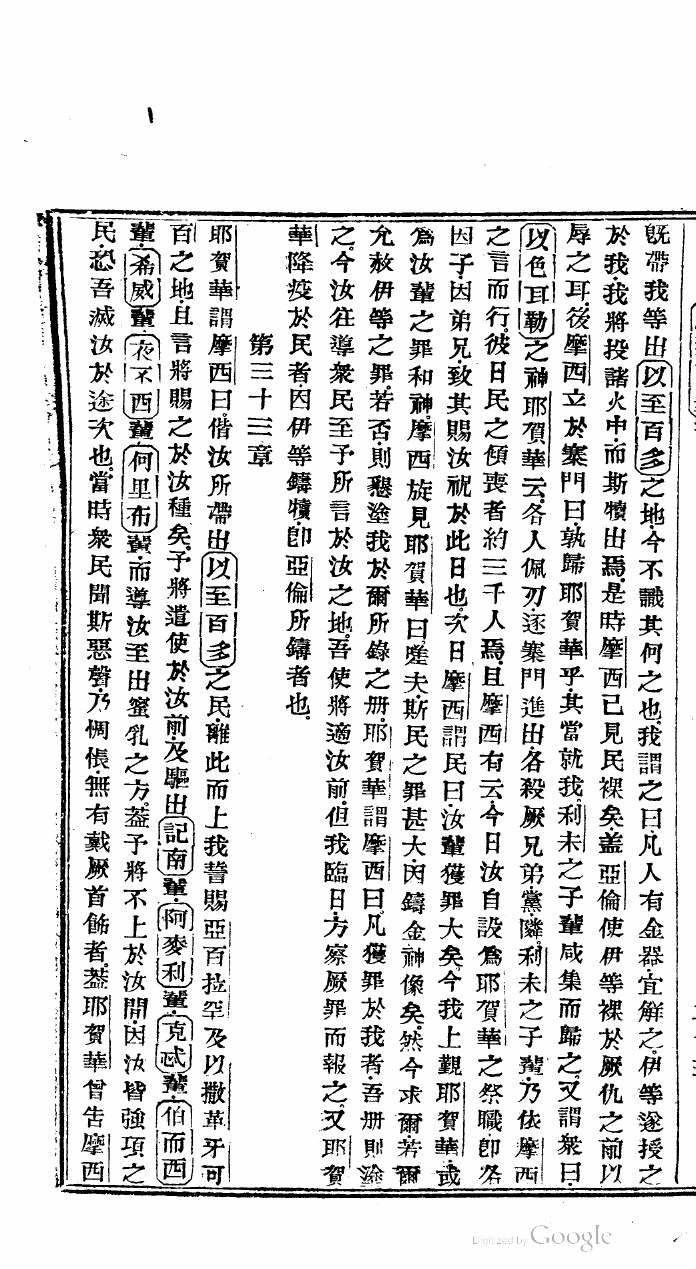 既帶我等出以至百多之地今不識其何之也我謂之曰凡人有金器宜解之伊等遂授之
於我我將投諸火中而斯犢出焉是時摩西已見民裸矣盖亞倫使伊等裸於厥仇之前以
辱之耳後摩西立於寨門曰孰歸耶賀華乎其當就我利未之子輩咸集而歸之又謂衆曰
以色耳勒之神耶賀華云各人佩刃逐寨門進出各殺厥兄弟黨隣利未之子輩乃依摩西
之言而行彼日民之傾喪者約三千人焉且摩西有云今日汝自設爲耶賀華之祭職卽各
因子因弟兄致其賜汝祝於此日也次日摩西謂民曰汝輩獲罪大矣今我上觀耶賀華或
爲汝輩之罪和神摩西旋見耶賀華曰嗟夫斯民之罪甚大因鑄金神像矣然今求爾若爾
允赦伊等之罪若否則懇塗我於爾所錄之册耶賀華謂摩西曰凡獲罪於我者吾册則塗
之今汝往導衆民至予所言於汝之地吾使將適汝前但我臨日方察厥罪而報之又耶賀
華降疫於民者因伊等鑄犢卽亞倫所鑄者也
第三十三章
耶賀華謂摩西曰偕汝所帶出以至百多之民離此而上我誓賜亞百拉罕及以撒革牙可
百之地且言將賜之於汝種矣予將遣使於汝前及驅出記南輩阿麥利輩克忒輩伯而西
輩希威輩夜不西輩何里布輩而導汝至出蜜乳之方葢予將不上於汝閒因汝皆強項之
民恐吾滅汝於途次也當時衆民聞斯惡聲乃惆悵無有戴厥首飾者葢耶賀華曾告摩西
Digitized by Google